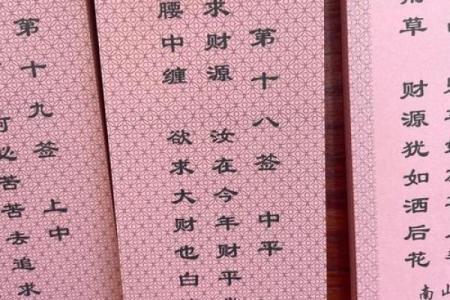 草 财源犹如洒后花
南
第十八签 中平
求财源 汝在今年财平
腰中缠 欲求大财也白
第十九签 上中
必苦苦去追求